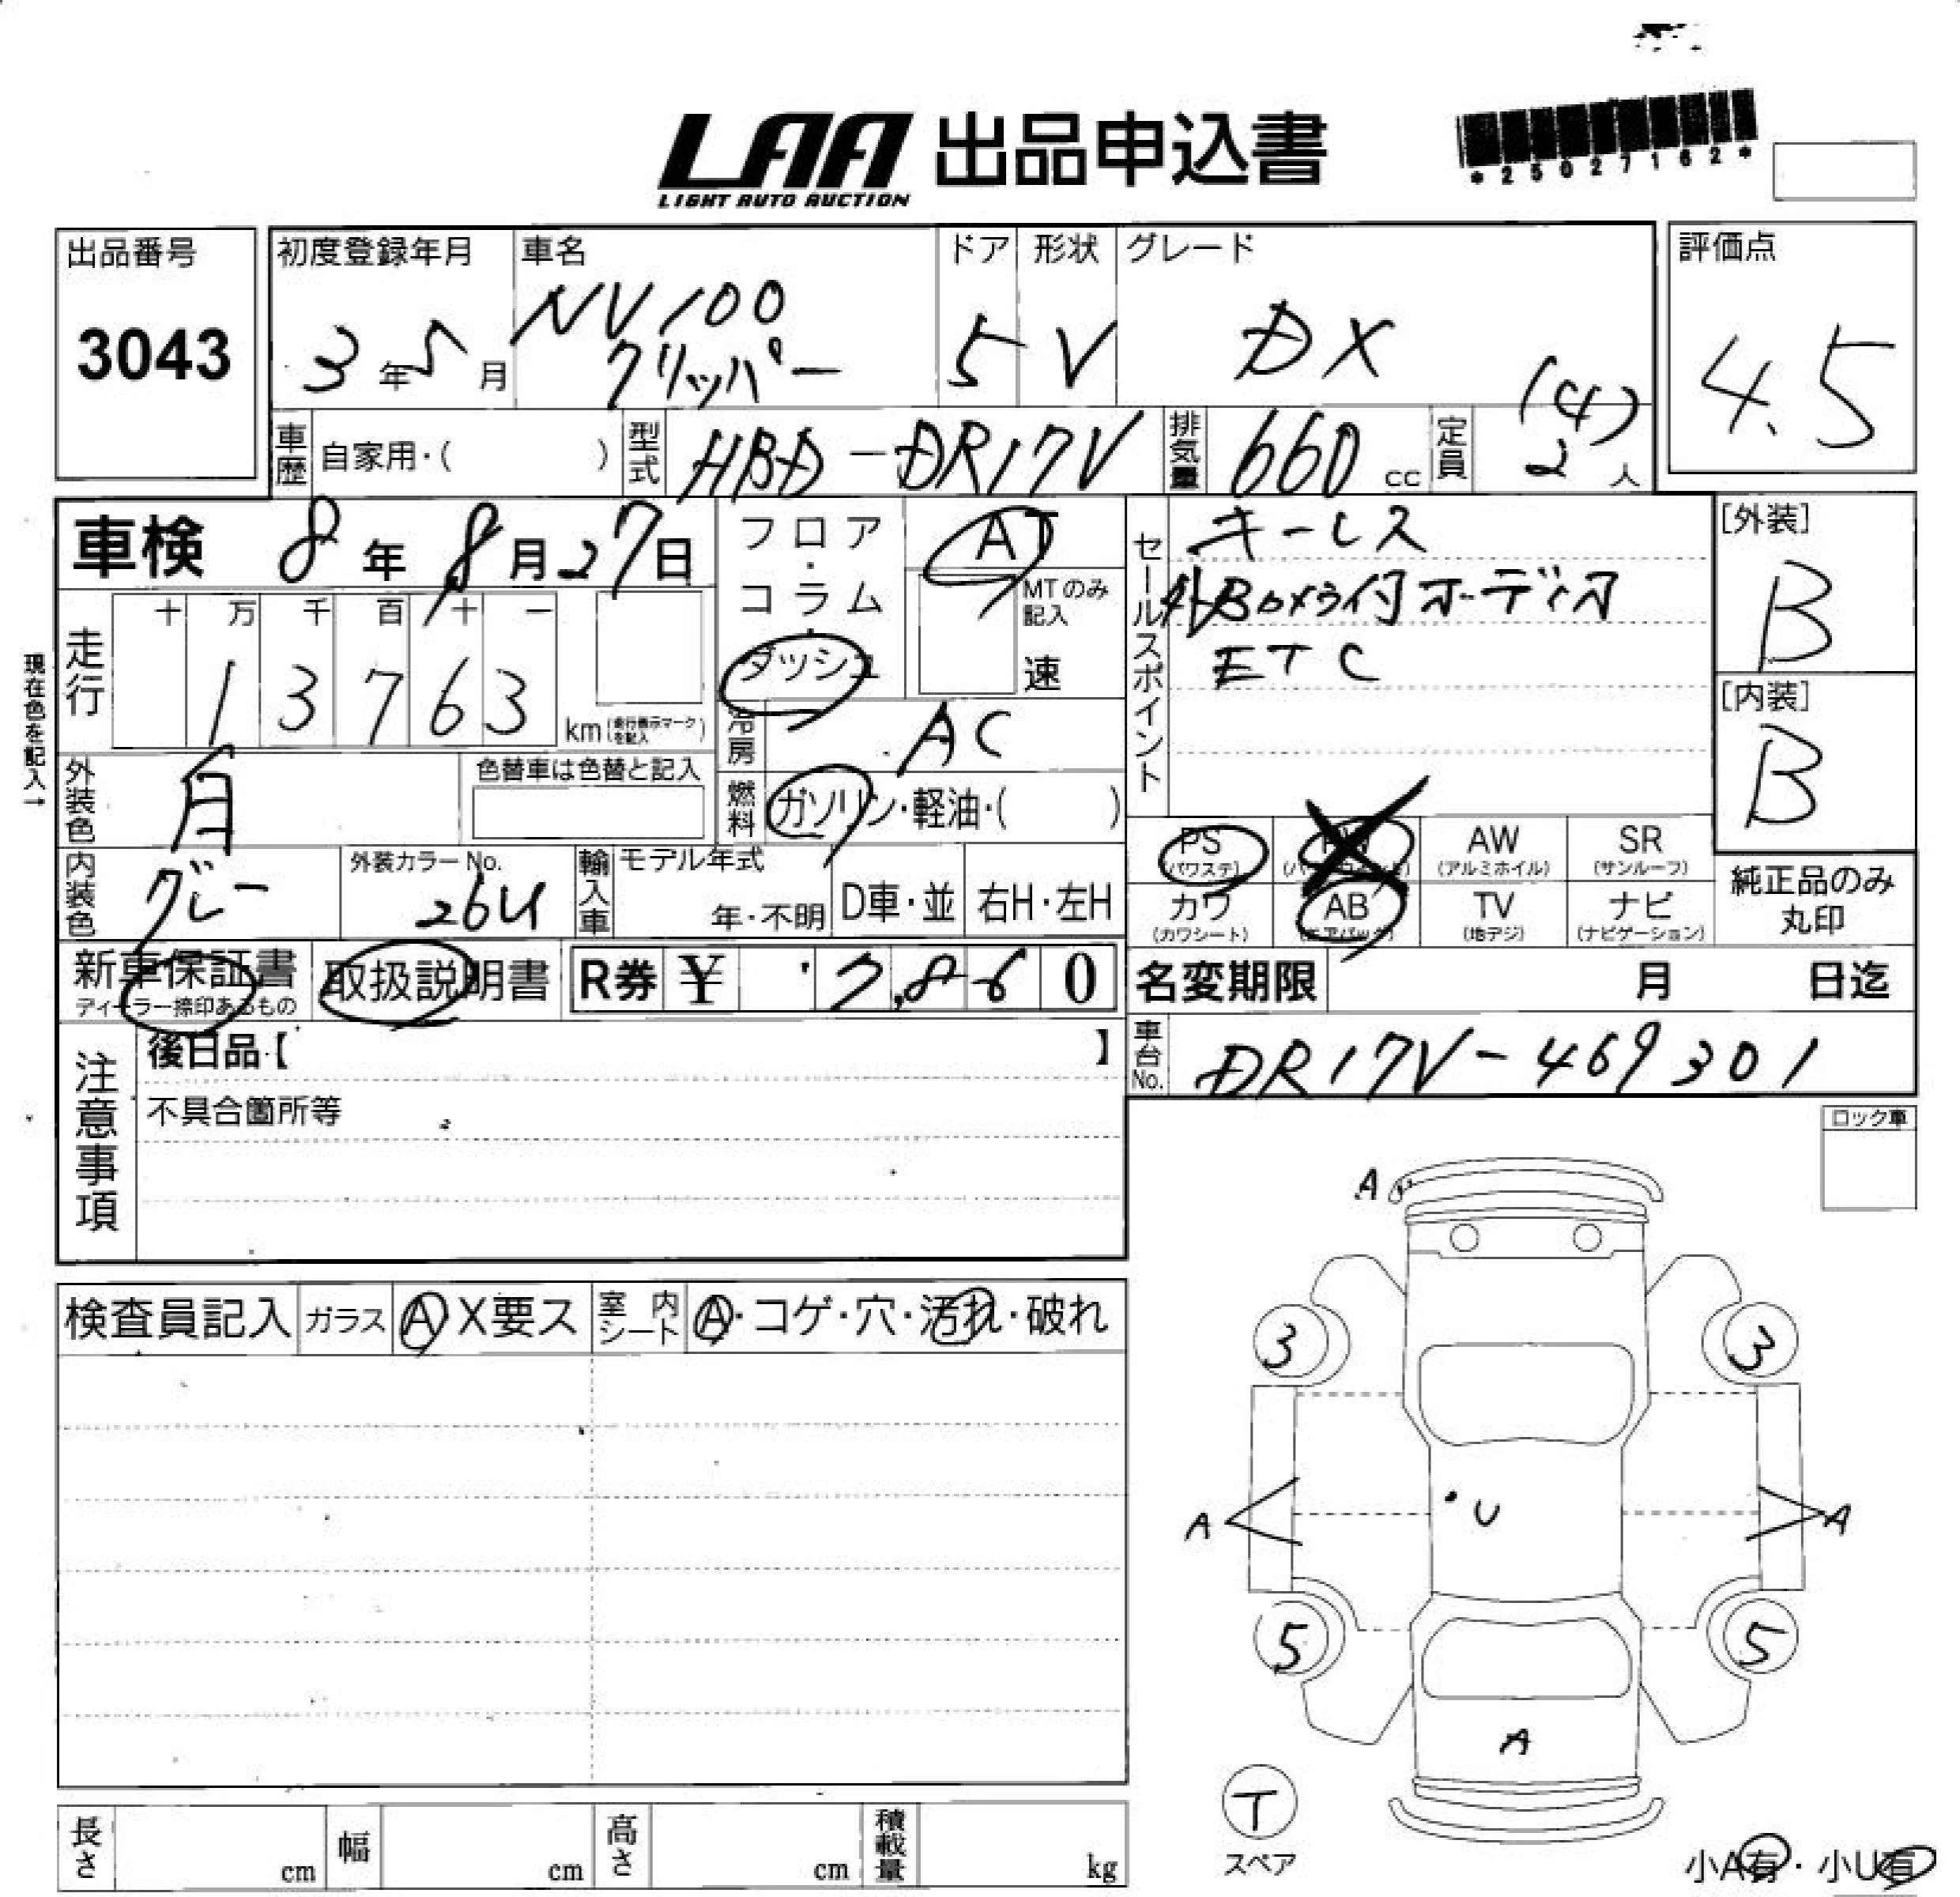 LAA 出品申込書
LIGHT AUTO AUCTION
*25027162*
出品番号
3043
初度登録年月
3年5月
車名
NV100
クリッパー
ドア
5
形状
V
グレード
DX
評価点
4.5
車歴 自家用・( )
型式 HBD-DR17V
排気量 660 cc
定員 (4)
2 人
車検 8年8月27日
走行 十 万 千 百 十 一
1 3 7 6 3
km (走行表示マークを記入)
現在色を記入→
外装色 白
色替車は色替と記入
内装色 グレー
外装カラーNo.
26U
フロア・コラム・ダッシュ
AT
MTのみ記入
速
冷房 AC
燃料 ガソリン・軽油・( )
輸入車 モデル年式
年・不明 D車・並 右H・左H
セールスポイント
キーレス
外Bカメラ付オーディオ
ETC
[外装]
B
[内装]
B
PS (パワステ)
AW (アルミホイル)
SR (サンルーフ)
カワ (カワシート)
AB (エアバック)
TV (地デジ)
ナビ (ナビゲーション)
純正品のみ
丸印
新車保証書
ディーラー捺印あるもの
取扱説明書
R券 ¥ 7,860
名変期限 月 日迄
車台No. DR17V-469301
注意事項
後日品【 】
不具合箇所等
ロック車
検査員記入 ガラス A X要ス 室内シート A・コゲ・穴・汚れ・破れ
A
3 3
A U A
5 5
A
T
スペア
小A有・小U有
長さ cm 幅 cm 高さ cm 積載量 kg